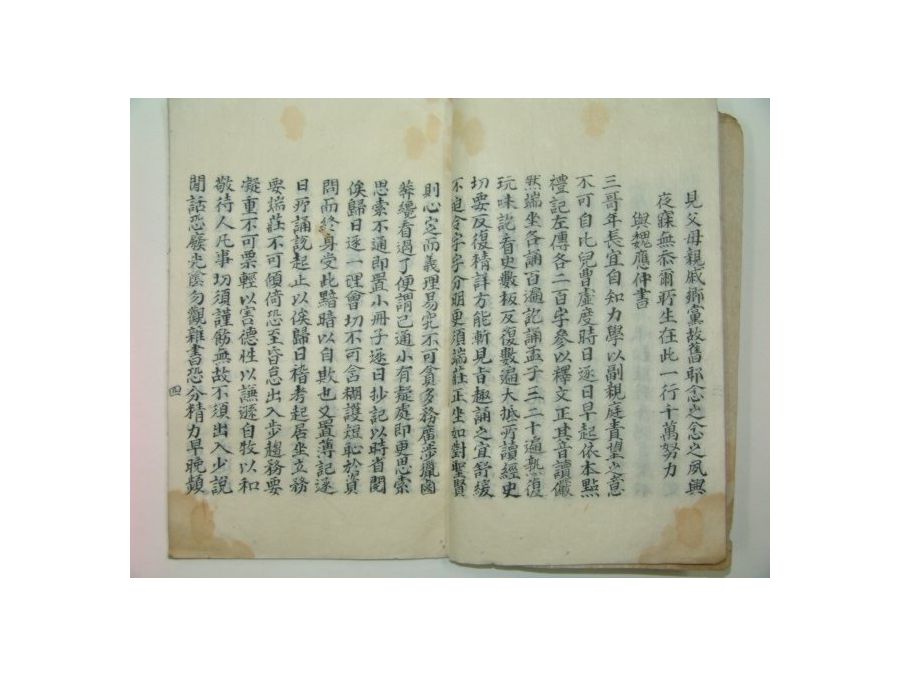 見父母親戚鄉黨故舊耶念之念之夙興
夜寐無忝爾所生在此一行千萬努力
與魏應仲書
三哥年長宜自知力學以副親庭責望之意
不可自比兒曹虛度時日逐日早起依本點
禮記左傳各二百字參以釋文正其音讀儼
然端坐各誦百遍記誦孟子三二十遍熟復
玩味訖看史數板反復數遍大抵所讀經史
切要反復精詳方能斬見旨趣誦之宜舒緩
不迫令字字分明更須端莊正坐如對聖賢
則心定而義理易究不可貪多務廣涉獵鹵
莽纔看過了便謂已通小有疑處即更思索
思索不通即置小冊子逐日抄記以時省閱
俟歸日逐一理會切不可含糊護短恥於資
問而終身受此黯暗以自欺也又置簿記逐
日所誦說起止以俟歸日稽考起居坐立務
要端莊不可傾倚恐至昏怠出入步趨務要
凝重不可票輕以害德性以謙遜自牧以和
敬待人凡事切須謹飭無故不須出入少說
閒話恐廢光陰勿觀雜書恐分精力早晚頻
四